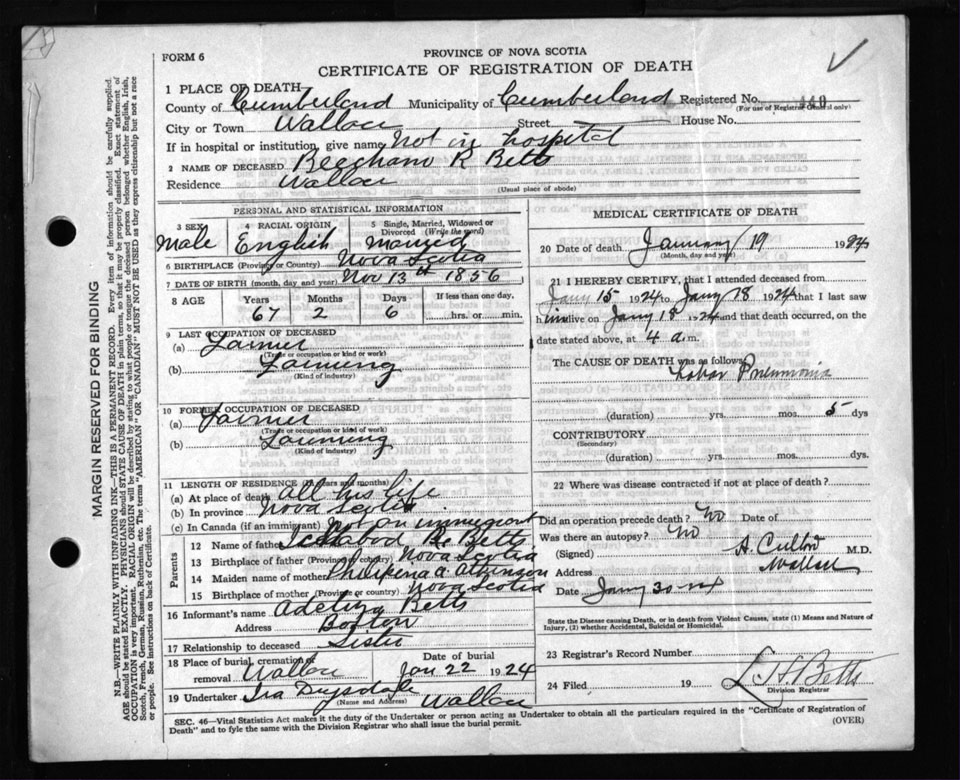 FORM 6
PROVINCE OF NOVA SCOTIA
CERTIFICATE OF REGISTRATION OF DEATH
MARGIN RESERVED FOR BINDING
N.B.—WRITE PLAINLY WITH UNFADING INK—THIS IS A PERMANENT RECORD. Every item of information should be carefully supplied.
AGE should be stated EXACTLY. PHYSICIANS should STATE CAUSE OF DEATH in plain terms, so that it may be properly classified. Exact statement of
OCCUPATION is very important. RACIAL ORIGIN will be described by stating to what people or tongue the deceased person belonged whether English, Irish,
Scotch, French, German, Russian, Ruthenian, etc. The terms "AMERICAN" OR "CANADIAN" MUST NOT BE USED as they express citizenship but not a race
or people. See instructions on back of Certificate.
1 PLACE OF DEATH
County of Cumberland Municipality of Cumberland Registered No.
(For use of Registrar General only)
City or Town Wallace Street House No.
If in hospital or institution, give name Not in hospital
2 NAME OF DECEASED Beecham R Betts
Residence Wallace (Usual place of abode)
PERSONAL AND STATISTICAL INFORMATION
3 SEX 4 RACIAL ORIGIN 5 Single, Married, Widowed or Divorced (Write the word)
Male English Married
6 BIRTHPLACE (Province or Country) Nova Scotia
7 DATE OF BIRTH (month, day and year) Nov 13th 1856
8 AGE Years Months Days If less than one day,
67 2 6 hrs. or min.
9 LAST OCCUPATION OF DECEASED
(a) Farmer
(Trade or occupation or kind or work)
(b) Farming
(Kind of industry)
10 FORMER OCCUPATION OF DECEASED
(a) Farmer
(Trade or occupation or kind of work)
(b) Farming
(Kind of industry)
11 LENGTH OF RESIDENCE (in years and months)
(a) At place of death all his life
(b) In province Nova Scotia
(c) In Canada (if an immigrant) Not an immigrant
Parents
12 Name of father Ichabod B. Betts
13 Birthplace of father (Province or country) Nova Scotia
14 Maiden name of mother a Atkinson
15 Birthplace of mother (Province or country) Nova Scotia
16 Informant's name Adelina Betts
Address Boston
17 Relationship to deceased Sister
18 Place of burial, cremation or removal Wallace Date of burial Jan 22 1924
19 Undertaker Ira Drysdale Wallace
(Name and Address)
MEDICAL CERTIFICATE OF DEATH
20 Date of death January 19 1924
(Month, day and year)
21 I HEREBY CERTIFY, that I attended deceased from
Jany 15 1924 to Jany 18 1924 that I last saw
him alive on Jany 18 1924 and that death occurred, on
date stated above, at 4 a.m.
The CAUSE OF DEATH was as follows
Lobar Pneumonia
(duration) yrs. mos. 5 dys
CONTRIBUTORY
(Secondary)
(duration) yrs. mos. dys.
22 Where was disease contracted if not at place of death?
Did an operation precede death? No Date of
Was there an autopsy? No
(Signed) A. M.D.
Address Wallace
Date Jany 30
State the Disease causing Death, or in death from Violent Causes, state (1) Means and Nature of
Injury, (2) whether Accidental, Suicidal or Homicidal.
23 Registrar's Record Number
24 Filed 19 L H. Betts
Division Registrar
SEC. 46—Vital Statistics Act makes it the duty of the Undertaker or person acting as Undertaker to obtain all the particulars required in the "Certificate of Registration of
Death" and to fyle the same with the Division Registrar who shall issue the burial permit.
(OVER)